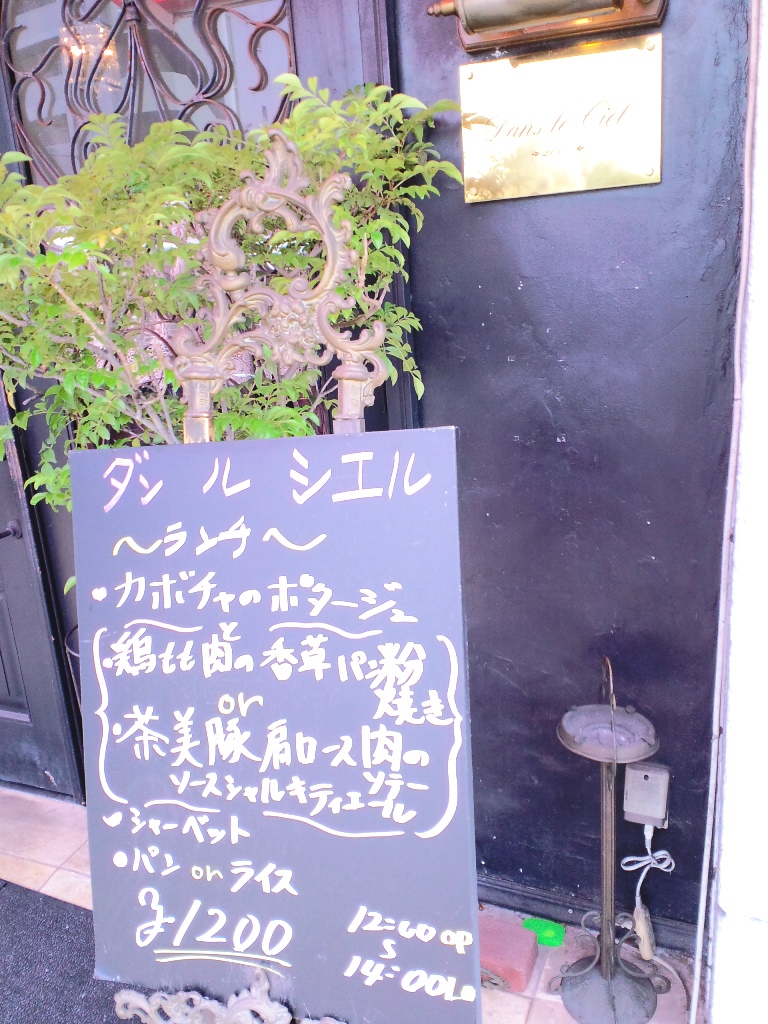 Dans le Ciel
ダン ル シエル
〜ランチ〜
・カボチャのポタージュ
・鶏もも肉の香草パン粉焼き
or
・茶美豚肩ロース肉のソテー
ソースシャルキティエール
・シャーベット
・パン or ライス
¥1200
12:00 OP
14:00 Lo